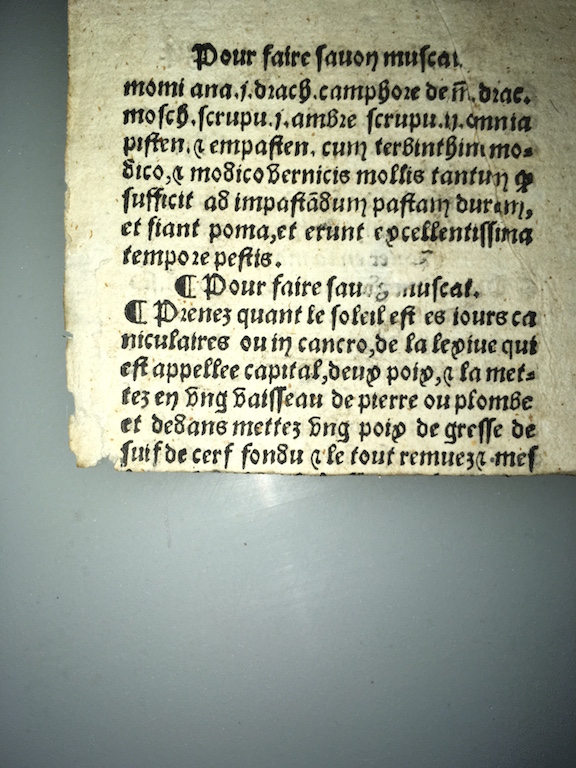 Pour faire sauon muscat.
momi ana.j.drach.camphore de ij. drac.
mosch.scrupu.j.ambre scrupu.ij.omnia
pisten.⁊ empasten. cum terbinthini mo-
dico,⁊ modico vernicis mollis tantum ꝙ
sufficit ad impastādum pastam duram,
et fiant poma,et erunt excellentissima
tempore pestis.
¶ Pour faire sauon muscat.
¶ Prenez quant le soleil est es iours ca
niculaires ou in cancro,de la lexiue qui
est appellee capital,deux poix,⁊ la met-
tez en vng vaisseau de pierre ou plombe
et dedans mettez vng poix de gresse de
suif de cerf fondu ⁊ le tout remuez ⁊ mes